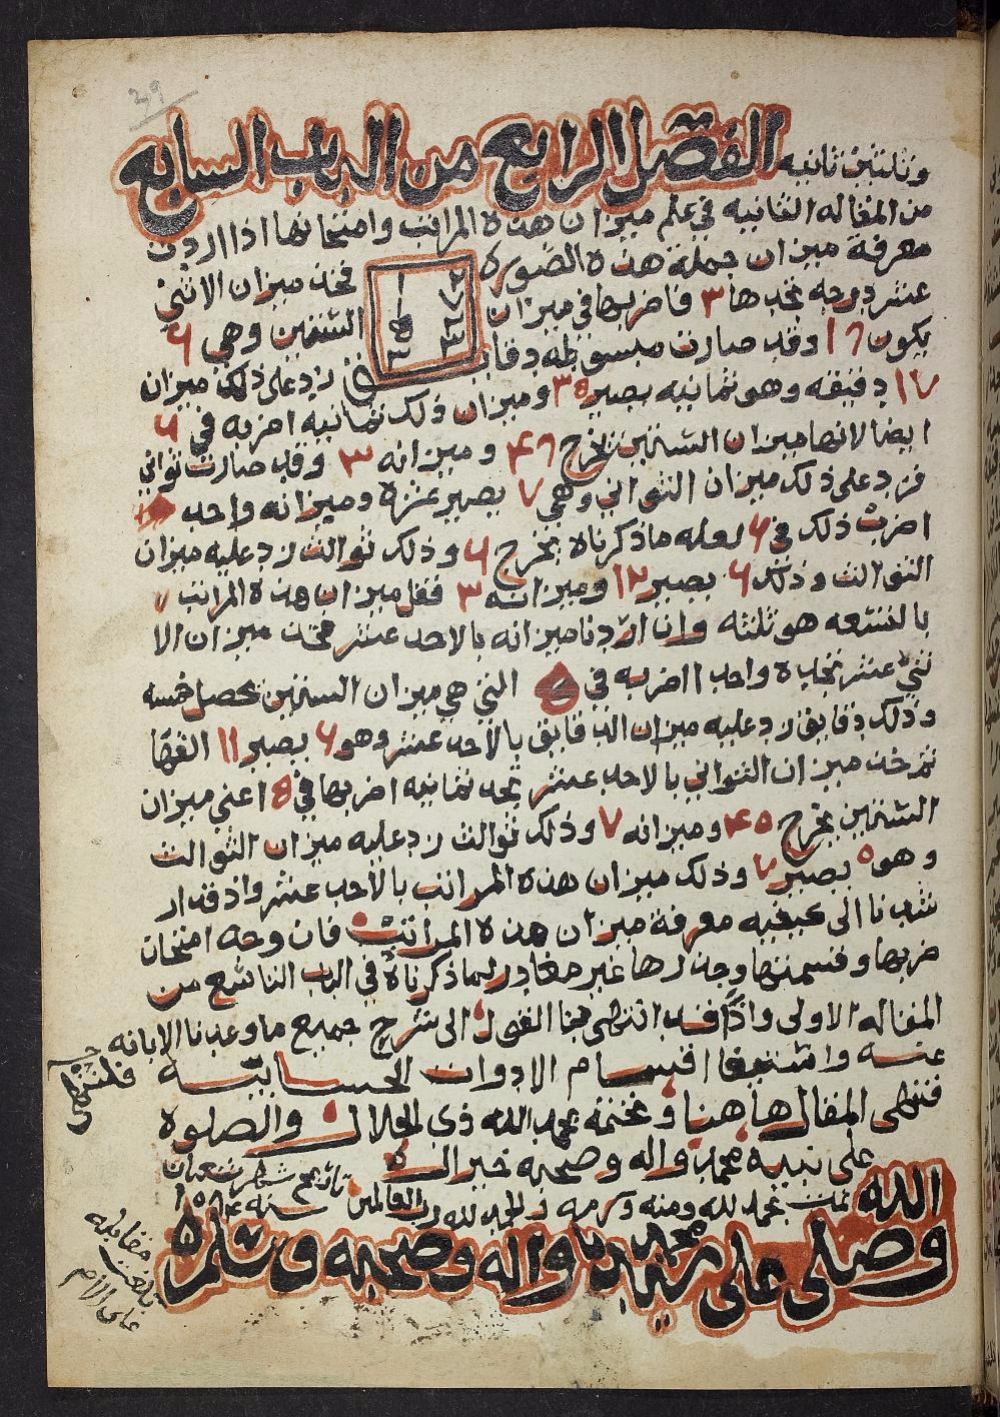 29
وثلثين ثانيه الفصل الرابع من الباب السابع
من المقاله الثانيه في علم ميزان هذه المراتب وامتحانها اذا اردت
معرفة ميزان جملة هذه الصوره فخذ ميزان الاثني
عشر درجه تجدها ٣ فاضربها في ميزان الستين وهي ٦
يكون ١٦ وقد صارت مبسوطه دقايق زد على ذلك ميزان
١٧ دقيقه وهو ثمانيه يصير وميزان ذلك ثمانيه اضربه في ٦
ايضا لانها ميزان الستين يخرج ٤٦ وميزانه ٣ وقد صارت ثواني
فزد على ذلك ميزان الثواني وهي ٧ يصير عشرة وميزانه واحد
اضرب ذلك في ٦ لعله ماذكرناه يخرج ٦ وذلك ثوالث زد عليه ميزان
الثوالث وذلك ٦ يصير ١٢ وميزانه ٣ فقل ميزان هذه المراتب
بالتسعه هو ثلثه وان اردنا ميزانه بالاحد عشر فخذ ميزان الا
ثني عشر تجده واحدا اضربه في ۵ التي هي ميزان الستين يحصل خمسه
وذلك دقايق زد عليه ميزان الدقايق بالاحد عشر وهو ٦ يصير ١١ القها
ثم خذ ميزان الثواني بالاحد عشر تجد ثمانيه اضربها في ۵ اعني ميزان
الستين يخرج ٤٠ وميزانه ٧ وذلك ثوالث زد عليه ميزان الثوالث
وهو ٠ يصير ٧ وذلك ميزان هذه المراتب بالاحد عشر واذ قد ار
شدنا الى كيفيه معرفة ميزان هذه المراتب فان وجه امتحان
ضربها وقسمتها وجذرها غير مغادر لما ذكرناه في الباب التاسع من
المقاله الاولى واذا قد انتهى بنا القول الى شرح جميع ما وعدنا الابانه
عنه وامتنعنا اقسام الادوات الحسابيه فلننتهي
فننهى المقال هاهنا ونختمه بحمد الله ذي الجلال والصلوة
على نبيه محمد واله وصحبه خير ال
تمت بحمد لله ومنه وكرمه والحمد لله رب العالمين بتاريخ شهر شعبان سنه
وصلى الله على سيدنا محمد واله وصحبه وسلم
بلغت مقابله
على الام